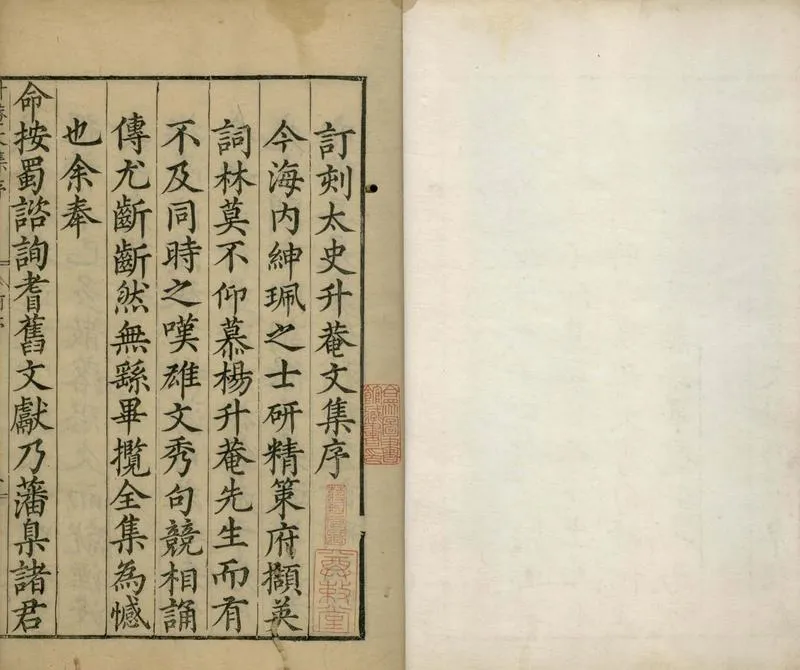 訂刻太史升菴文集序
今海內紳珮之士研精策府擷英
詞林莫不仰慕楊升菴先生而有
不及同時之嘆雄文秀句競相誦
傳尤齗齗然無繇畢攬全集為憾
也余奉
命按蜀諮詢耆舊文獻乃藩臬諸君